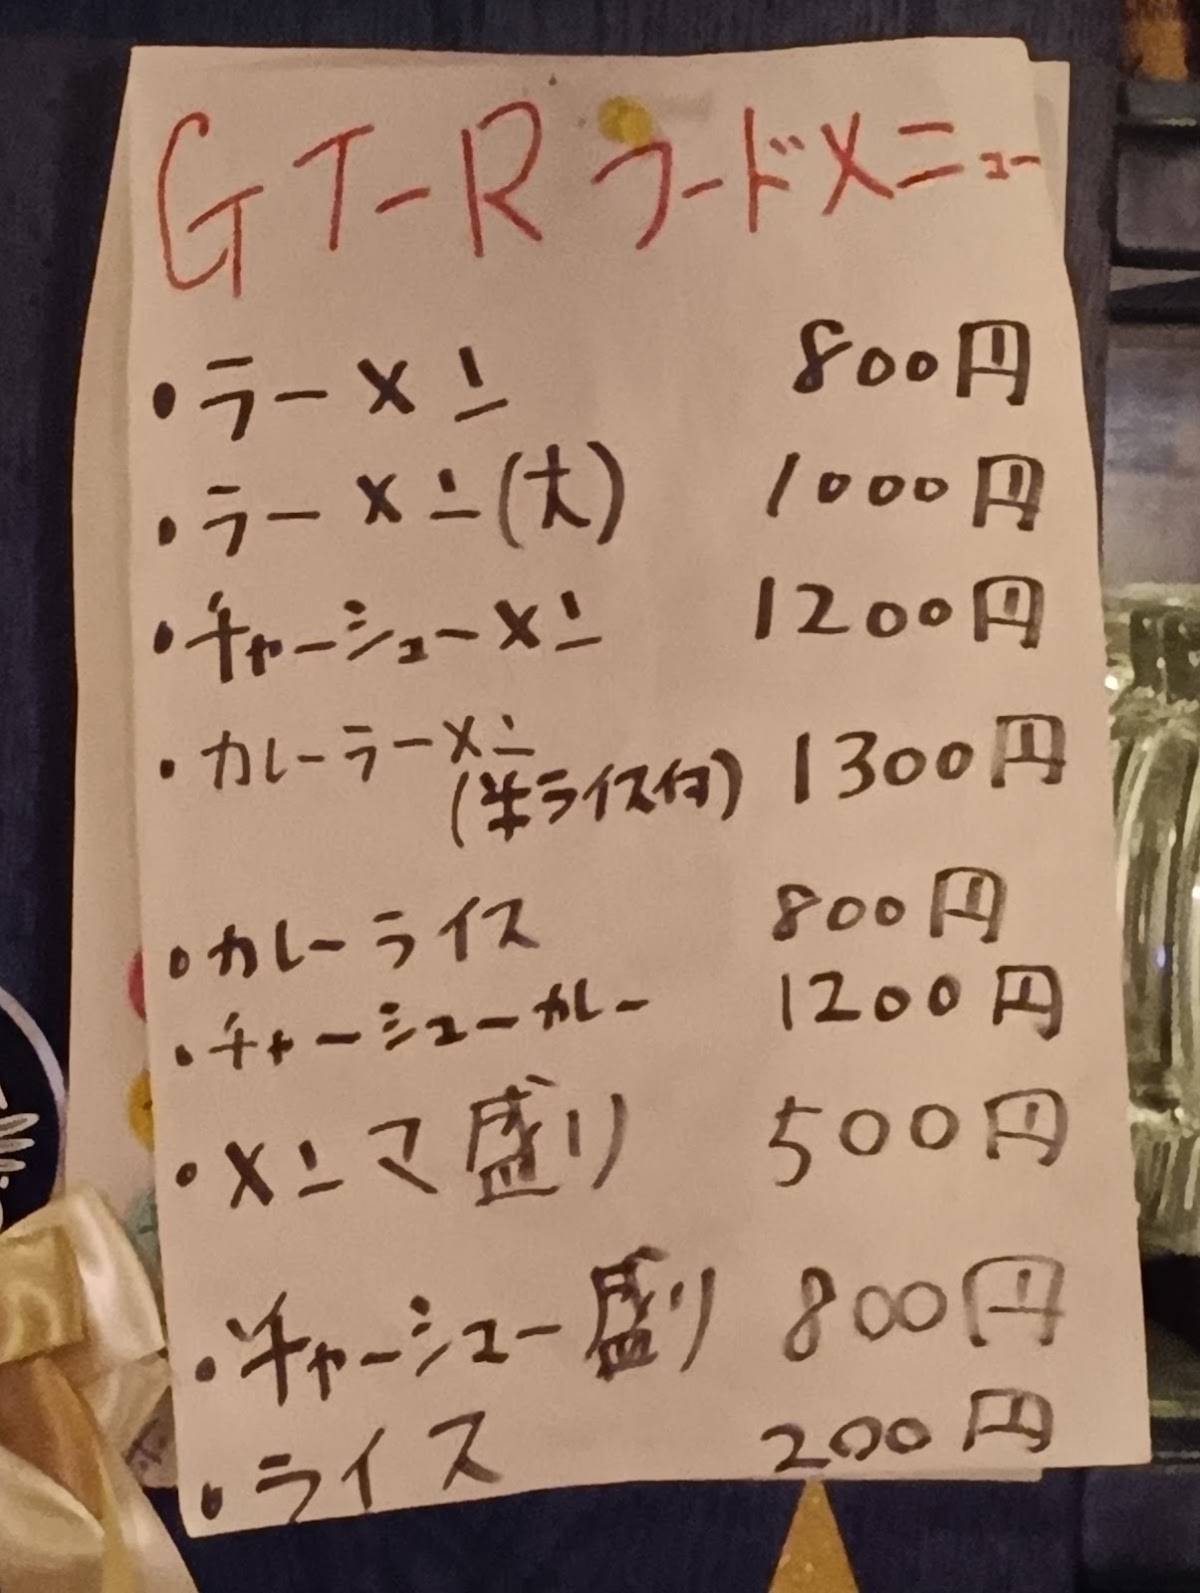 GT-Rフードメニュー
・ラーメン 800円
・ラーメン(大) 1000円
・チャーシューメン 1200円
・カレーラーメン 1300円
(半ライス付)
・カレーライス 800円
・チャーシューカレー 1200円
・メンマ盛り 500円
・チャーシュー盛り 800円
・ライス 200円